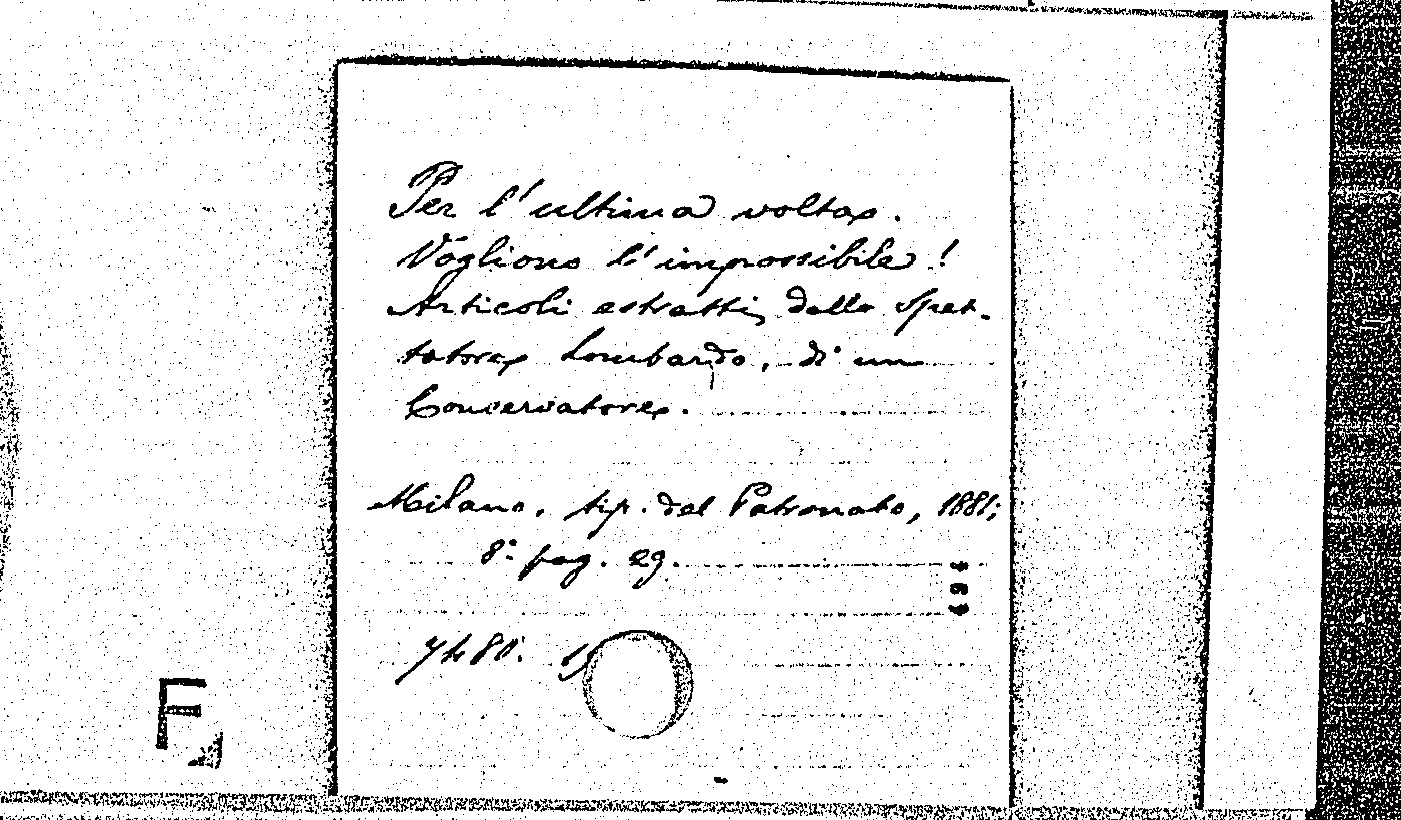 Per l'ultima volta.
Vogliono l'impossibile!
Articoli estratti dallo Spet-
tatore Lombardo, di un
Conservatore.
Milano, tip. del Patronato, 1881;
8° pag. 29.
7480.
F